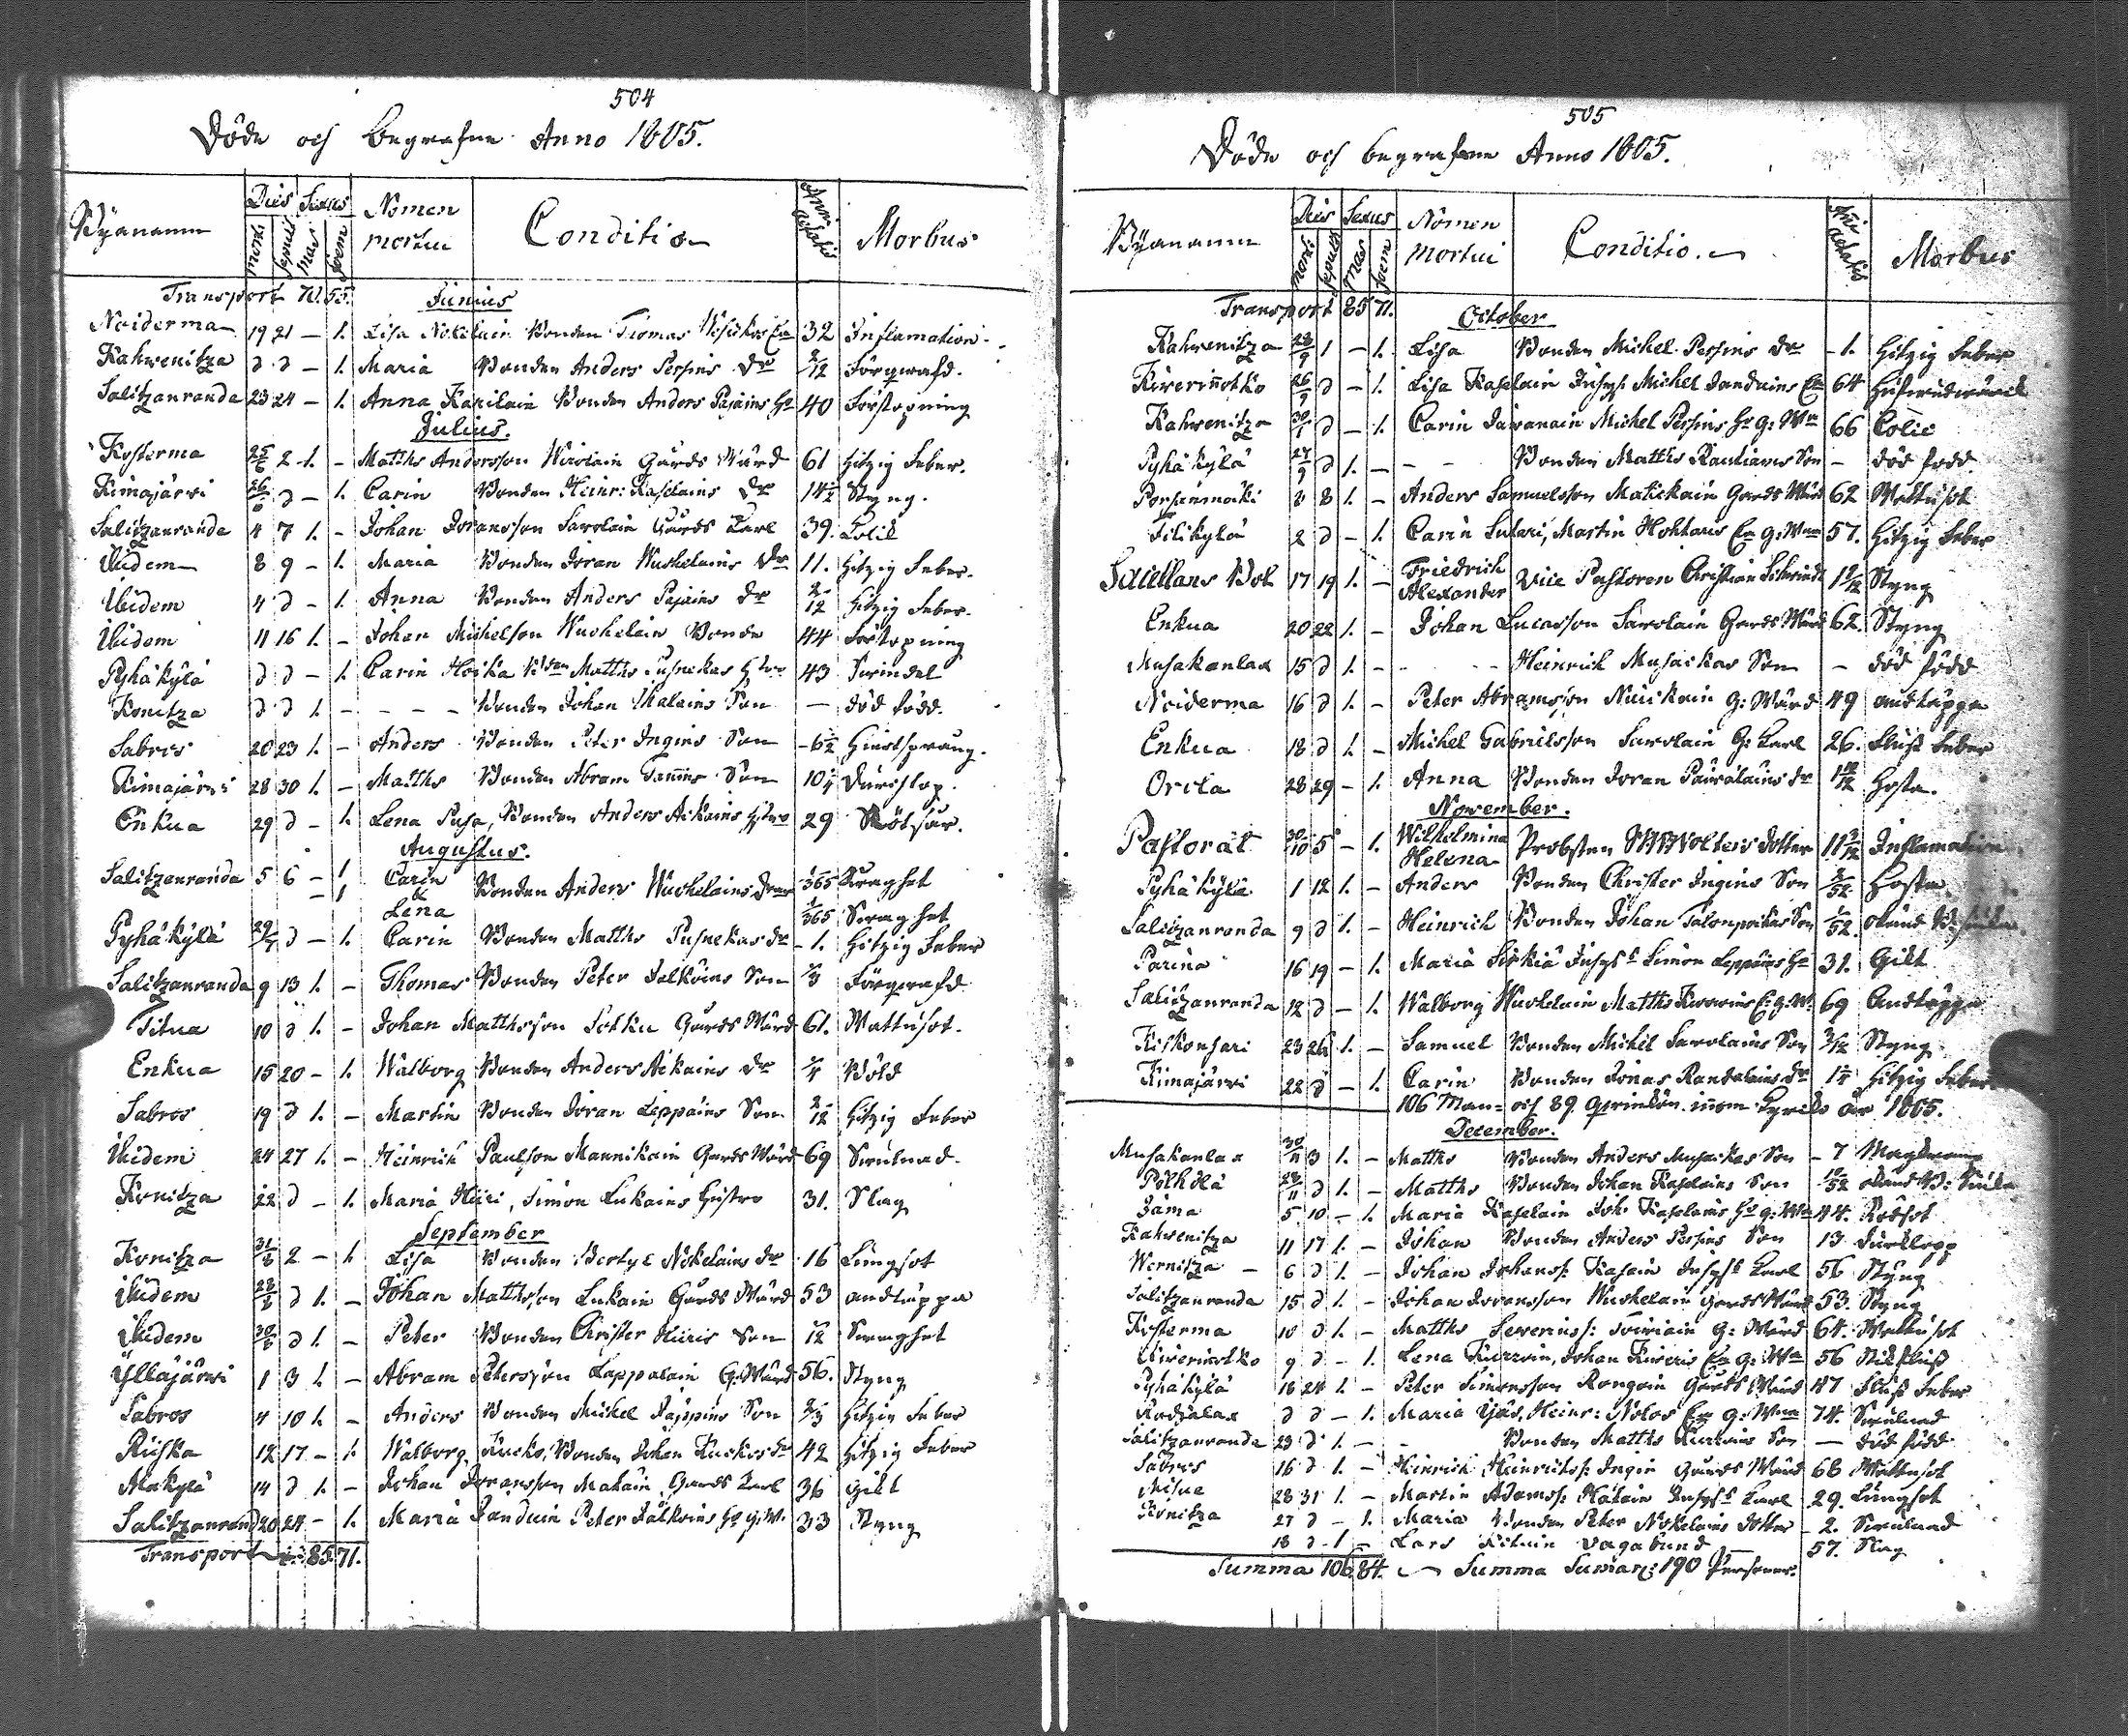 504
Döde och begrafne Anno 1805.
Byanamn Dies Sexus Nomen mortui Conditio Anni aetatis Morbus
morti sepult mas foem
Transport 70. 55. Junius
Noiderma 19 21 – 1. Lisa Nokelain Bonden Thomas 32 Inflamation
Kahwenitza d d – 1. Maria Bonden Anders Pessins Dr 2/12 Förqwafd.
Salitzanranda 23 24 – 1. Anna Karilain Bonden Anders Pajains Ha 40 Förstopning
Julius.
Kosterma 25/6 2 1. – Matths Andersson Wirolain Gårds Wärd 61 Hitzig Feber.
Kimajärwi 26/6 d – 1. Carin Bonden Heinr: Kaselains Dr 14 1/2 Styng.
Salitzanranda 4 7 1. – Johan Joransson Sawolain Gårds Karl 39. Colik
Ibidem 8 9 – 1. Maria Bonden Joran Wuokelains Dr 11. Hitzig Feber.
Ibidem 4 d – 1. Anna Bonden Anders Pajains Dr 2/12 Hitzig Feber.
Ibidem 11 16 1. – Johan Michelson Wuokelain Bonde 44 Förstopning
Pyhäkylä d d – 1. Carin Hoika Matths Pusnekas Hstro 43 Swindel
Konitza d d 1. – – – – Bonden Johan Ihalains Son — död född.
Sabros 20 23 1. – Anders Bonden Peter Ingins Son – 6 1/2
Kimajärwi 28 30 1. – Matths Bonden Abram Tannins Son 10 1/4 Durchlop.
Enkua 29 d – 1. Lena Pusa, Bonden Anders Aikains Hstro 29 Rötsår.
Augustus.
Salitzanranda 5 6 – 1 Carin 1/365 Swaghet
– 1 & Bonden Anders Wuokelains Drar
Lena 1/365 Swaghet
Pyhäkylä 29/7 d – 1. Carin Bonden Matths Pusnekas Dr – 1. Hitzig Feber
Salitzanranda 9 13 1. – Thomas Bonden Peter Jalkoins Son Förqwafd
Titua 10 d 1. – Johan Matthsson Sotku Gårds Wärd 61. Wattusot.
Enkua 15 20 – 1. Walborg Bonden Anders Aikains Dr Båld
Sabros 19 d 1. – Martin Bonden Joran Leppäins Son 2/12 Hitzig Feber
Ibidem 24 27 1. – Heinrich Paulsson Mannikain Gårds Wärd 69 Swulnad.
Konitza 22 d – 1. Maria Hiiri, Simon Lukains Hustro 31. Slag
September
Konitza 31/8 2 – 1 Lisa Bonden Bertil Nokelains Dr 16 Lungsot
Ibidem 28/8 d 1. – Johan Matthsson Lukain Gårds Wärd 53 andtäppa
Ibidem 30/8 d 1. – Peter Bonden Christer Hiiris Son Swaghet
Ylläjärwi 1 3 1. – Abram Petersson Lappalain G: Wärd 56. Styng
Sabros 4 10 1. – Anders Bonden Michel Jäppins Son 2/3 Hitzig Feber
Riiska 12 17 – 1. Walborg Kuoks, Bonden Johan Kuokos Dr 42 Hitzig Feber
Makylä 14 d 1. – Johan Joransson Matain Gårds Karl 36 Gikt
Salitzanranda 20 24 – 1. Maria Janduin Peter Jalkoins Ha g: W. 33 Styng
Transport 85. 71.
505
Döde och begrafne Anno 1805.
Byanamn Dies Sexus Nomen mortui Conditio. Anni aetatis Morbus
morti sepult mas foem
Transport 85 71. October
Kahwenitza 28/9 1 – 1. Lisa Bonden Michel Pessins Dr – 1. Hitzig Feber
Kiwerinotko 26/9 d – 1. Lisa Kaselain Inhys: Michel Janduins Enk 64
Kahwenitza d – 1. Carin Michel Pessins Ha g: Wn 66 Colic
Pyhäkylä 27/9 d 1. – – – Bonden Matths Rautiains Son – död född.
Porsenmäki 8 8 1. – Anders Samuelsson Matickain Gårds Wärd 62 Wattusot
Tilikylä 2 d – 1. Carin Sutari, Martin Hokkaris Enk g: Wn 57. Hitzig Feber
Sacellans Bol 17 19 1. – Friedrich Alexander Vice Pastoren Christian Schwindt 1 Styng
Enkua 20 22 1. – Johan Lucasson Sawolain Gårds Wärd 62. Styng
Musakanlax 15 d 1. – – – Heinrich Musackas Son – död född
Noiderma 16 d 1. – Peter Abramsson Nuickain G: Wärd 49 andtäppa
Enkua 18 d 1. – Michel Gabrielsson Sawolain G: Karl 26. Fluß Feber
Orola 28 29 – 1. Anna Bonden Joran Pawolains Dr 1 10/12 Hosta.
November.
Pastorat 30/10 5 – 1. Wilhelmina Helena Probsten Wolters Dotter 11 Inflamation
Pyhäkylä 1 12 1. – Anders Bonden Christer Ingins Son 3/52 Hosta
Salitzanranda 9 d 1. – Heinrich Bonden Johan Talonpoikas Son /52.
Parina 16 19 – 1. Maria Siskiä Inhyss Simon Leppäins Ha 31. Gikt
Salitzanranda 12 d – 1. Walborg Wuokelain Matths E: g: W. 69 Andtäppa
Kiskonsari 23 26 1. – Samuel Bonden Michel Sawolains Son 3/12 Styng
Kimajärwi 22 d – 1. Carin Bonden Jonas Randalains Dr 1 Hitzig Feber
106 Man= och 89 Qwinkön innom Kyrko år 1805.
December.
Musakanlax 30/11 3 1. – Matths Bonden Anders Musackas Son – 7
Pölhölä 28/11 d 1. – Matths Bonden Johan Kaselains Son 10/52
Jama 5 10 – 1. Maria Kaselain Joh: Kaselains Ha g: Wa 44. Rödsot
Kahwenitza 11 17 1. – Johan Bonden Anders Pessins Son 13 Durklopp
Wernitza – 6 d 1. – Johan Johanss: Kasain Inhyss Karl 56 Styng
Salitzanranda 15 d 1. – Johan Joransson Wuokelain Gårds Wärd 53. Styng
Kosterma 10 d 1. – Matths Sewerinss: Toiwiain G: Wärd 64. Wattusot
Kiwerinotko 9 d – 1. Lena Kurwin, Johan Kiweris Enk g: Wa 56
Pyhäkylä 18 24 1. – Peter Simonsson Rongain Gårds Wärd 47 Fluß Feber
Rodzalax d d – 1. Maria Yjäs, Heinr: Nolos Enk g: Wna 74. Swulnad
Salitzanranda 23 d 1. – – Bonden Matths Kurwins Son — död född
Sabros 16 d 1. – Heinrich Heinrichss: Ingin Gårds Wärd 68 Wattusot
Misua 28 31 1. – Martin Adamss: Hätain Inhyss Karl 29. Lungsot
Konitza 27 d – 1. Maria Bonden Peter Nokelains Dotter – 2. Swulnad
18 d 1 – Lars Kituin Vagabund 57. Slag
Summa 106. 84. Summa Sumar: 190 Personer.